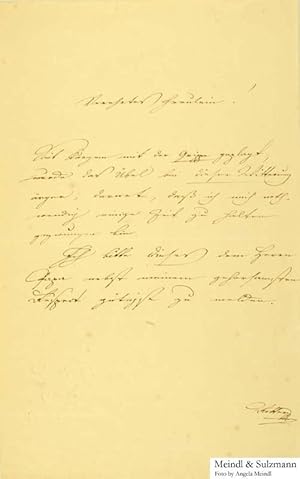 Verehrtes Fräulein!
Seit Kurzem mit der Grippe geplagt,
wurde das Übel bei dieser Witterung
ärger, derart, daß ich mich noth-
wendig einige Zeit zu halten
gezwungen bin.
Ich bitte dieses dem Herrn
Papa nebst meinem gehorsamsten
Respect gütigst zu melden.
Meindl & Sulzmann
Foto by Angela Meindl